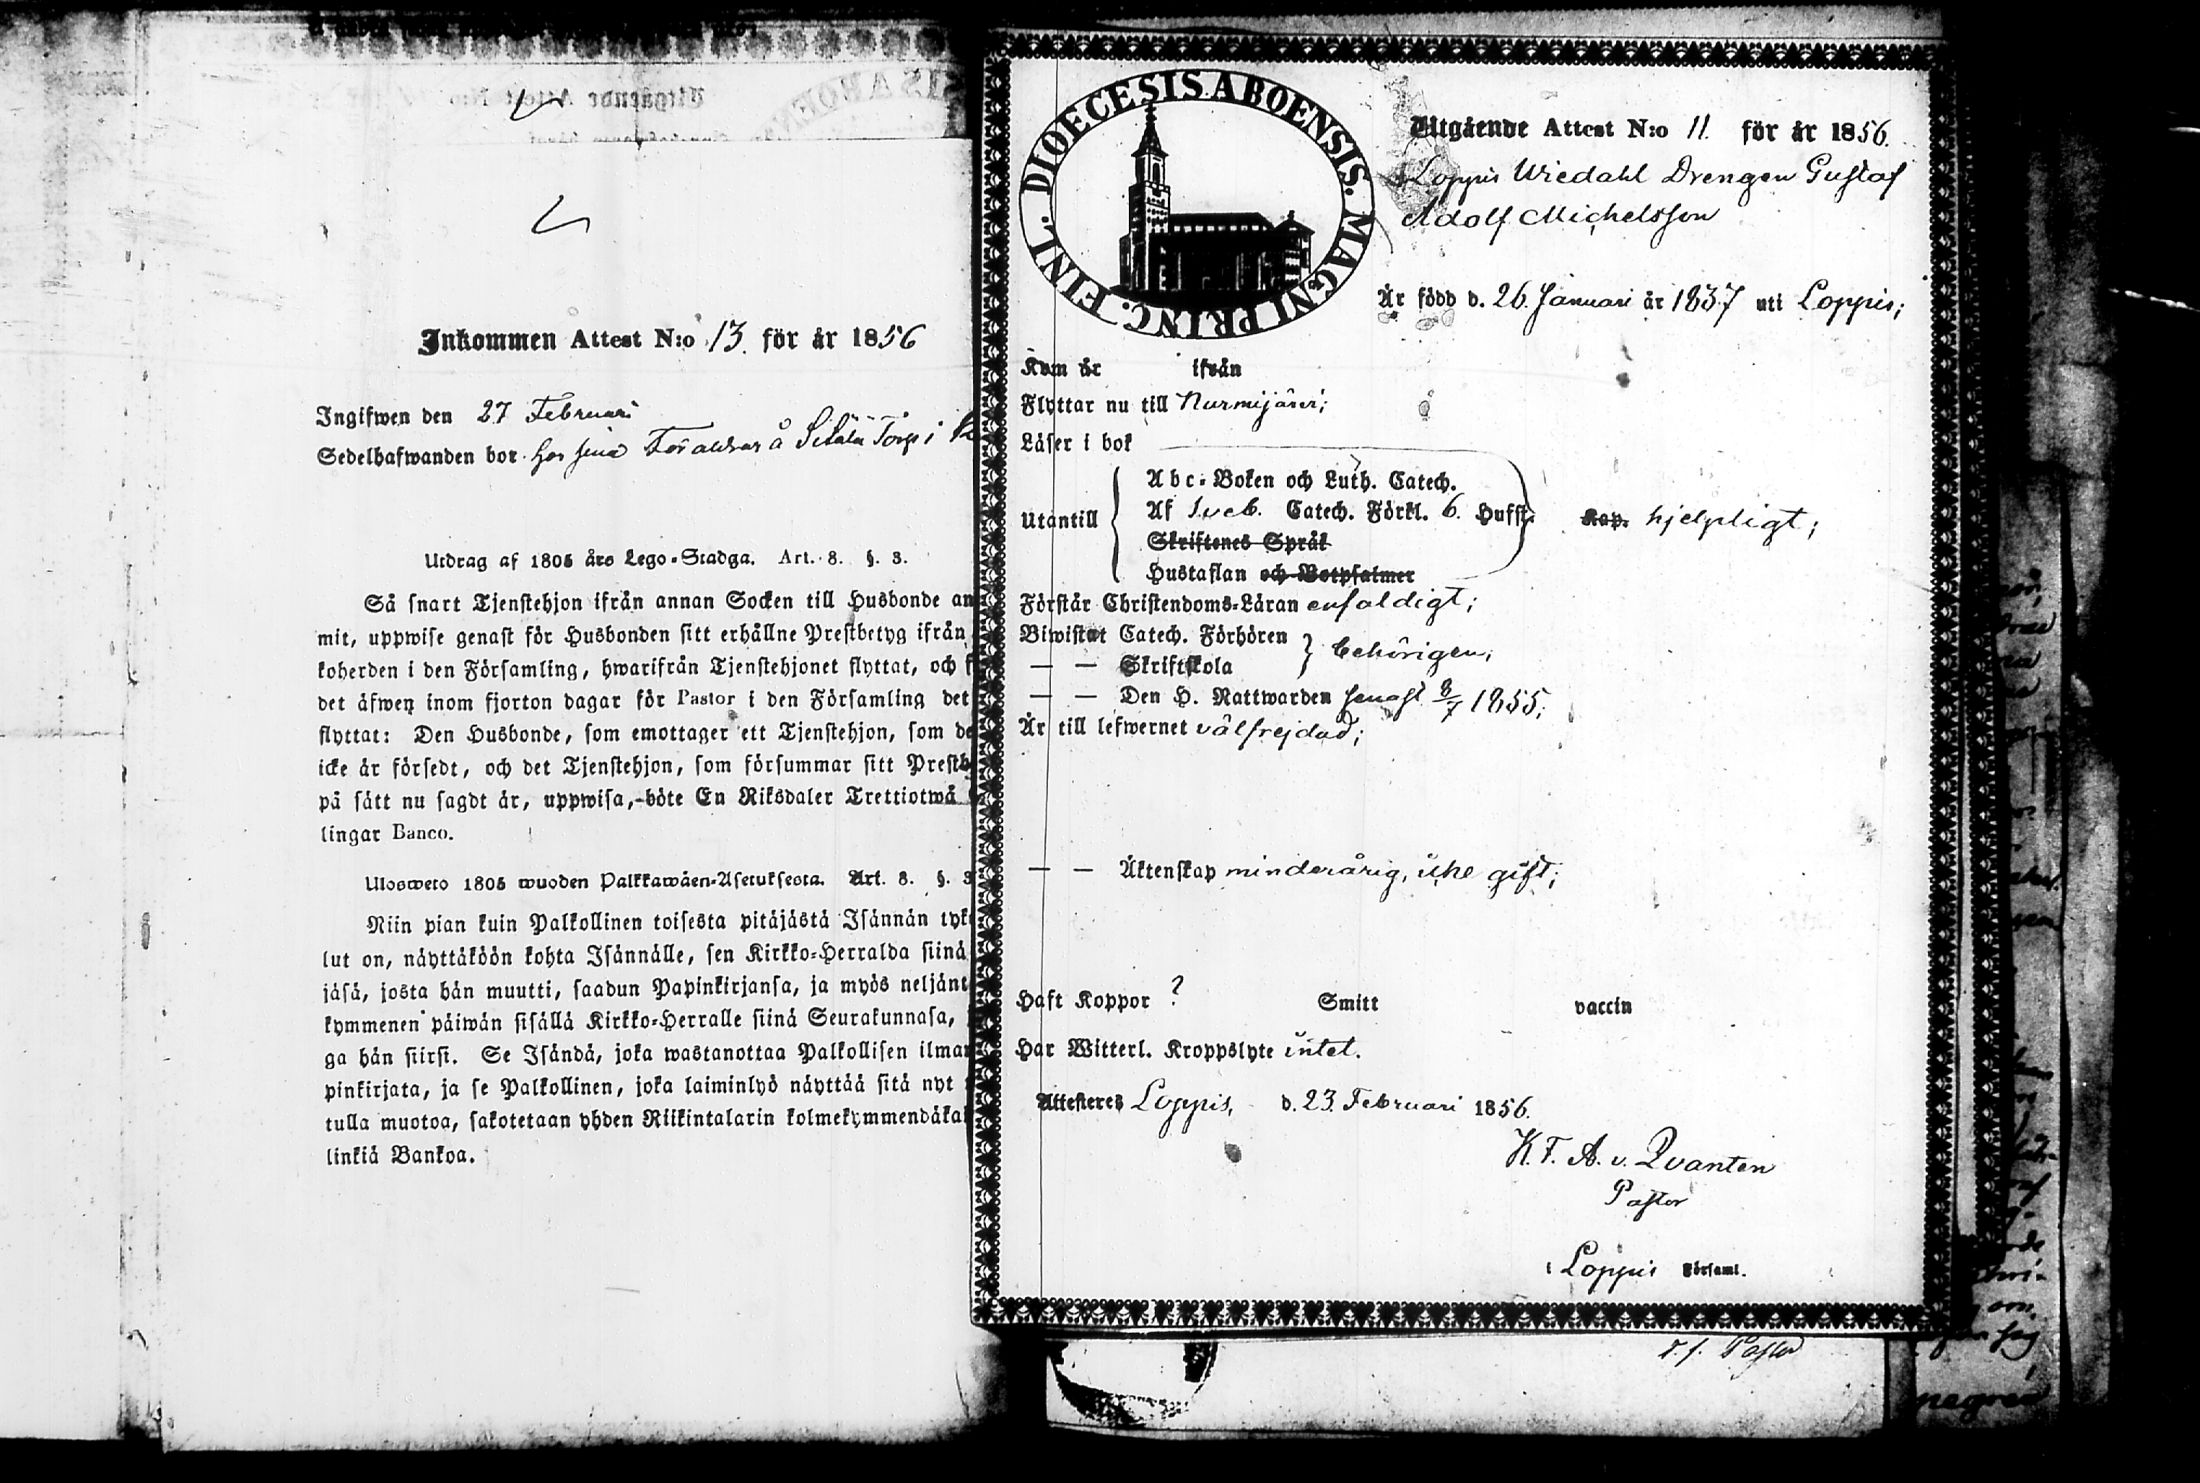 Inkommen Attest N:o 13. för år 1856
Ingifwen den 27 Februari
Sedelhafwanden bor hos sina Föräldrar å Torp i
Utdrag af 1805 års Lego-Stadga. Art. 8. §. 3.
Så snart Tjenstehjon ifrån annan Socken till Husbonde an
mit, uppwise genast för Husbonden sitt erhållne Prestbetyg ifrån
koherden i den Församling, hwarifrån Tjenstehjonet flyttat, och
det äfwen inom fjorton dagar för Pastor i den Församling det
flyttat: Den Husbonde, som emottager ett Tjenstehjon, som de
icke är försedt, och det Tjenstehjon, som försummar sitt Prestb
på sätt nu sagdt är, uppwisa, böte En Riksdaler Trettiotwå
lingar Banco.
Ulosweto 1805 wuoden Palkkawäen-Asetuksesta. Art. 8. §. 3
Niin pian kuin Palkollinen toisesta pitäjästä Isännän tykö
lut on, näyttäköön kohta Isännälle, sen Kirkko-Herralda siinä
jäsä, josta hän muutti, saadun Papinkirjansa, ja myös neljänt
kymmenen päiwän sisällä Kirkko-Herralle siinä Seurakunnasa,
ga hän siirsi. Se Isändä, joka wastanottaa Palkollisen ilman
pinkirjata, ja se Palkollinen, joka laiminlyö näyttää sitä nyt
tulla muotoa, sakotetaan yhden Riikintalarin kolmekymmendäkak
linkiä Bankoa.
DIOECESIS ABOENSIS. MAGNI PRINC. FINL.
Utgående Attest N:o 11. för år 1856.
Loppis Wiedahl Drengen Gustaf
Adolf Michelsson
Är född d. 26. Januari år 1837 uti Loppis;
Kom år ifrån
Flyttar nu till Nurmijärvi;
Läser i bok
Abc-Boken och Luth. Catech.
Utantill Af Sveb. Catech. Förkl. 6. Hufst. Kap. hjelpligt;
Skriftenes Språk
Hustaflan och Botpsalmer
Förstår Christendoms-Läran enfaldigt;
Biwistat Catech. Förhören
— — Skriftskola behörigen;
— — Den H. Nattwarden senast 8/7 1855;
Är till lefwernet välfrejdad;
— — Äktenskap minderårig, icke gift;
Haft Koppor ? Smitt vaccin
Har Witterl. Kroppslyte intet.
Attesteres Loppis, d. 23. Februari 1856.
K. F. A. v. Qvanten
Pastor
i Loppis Församl.
v. f. Pastor